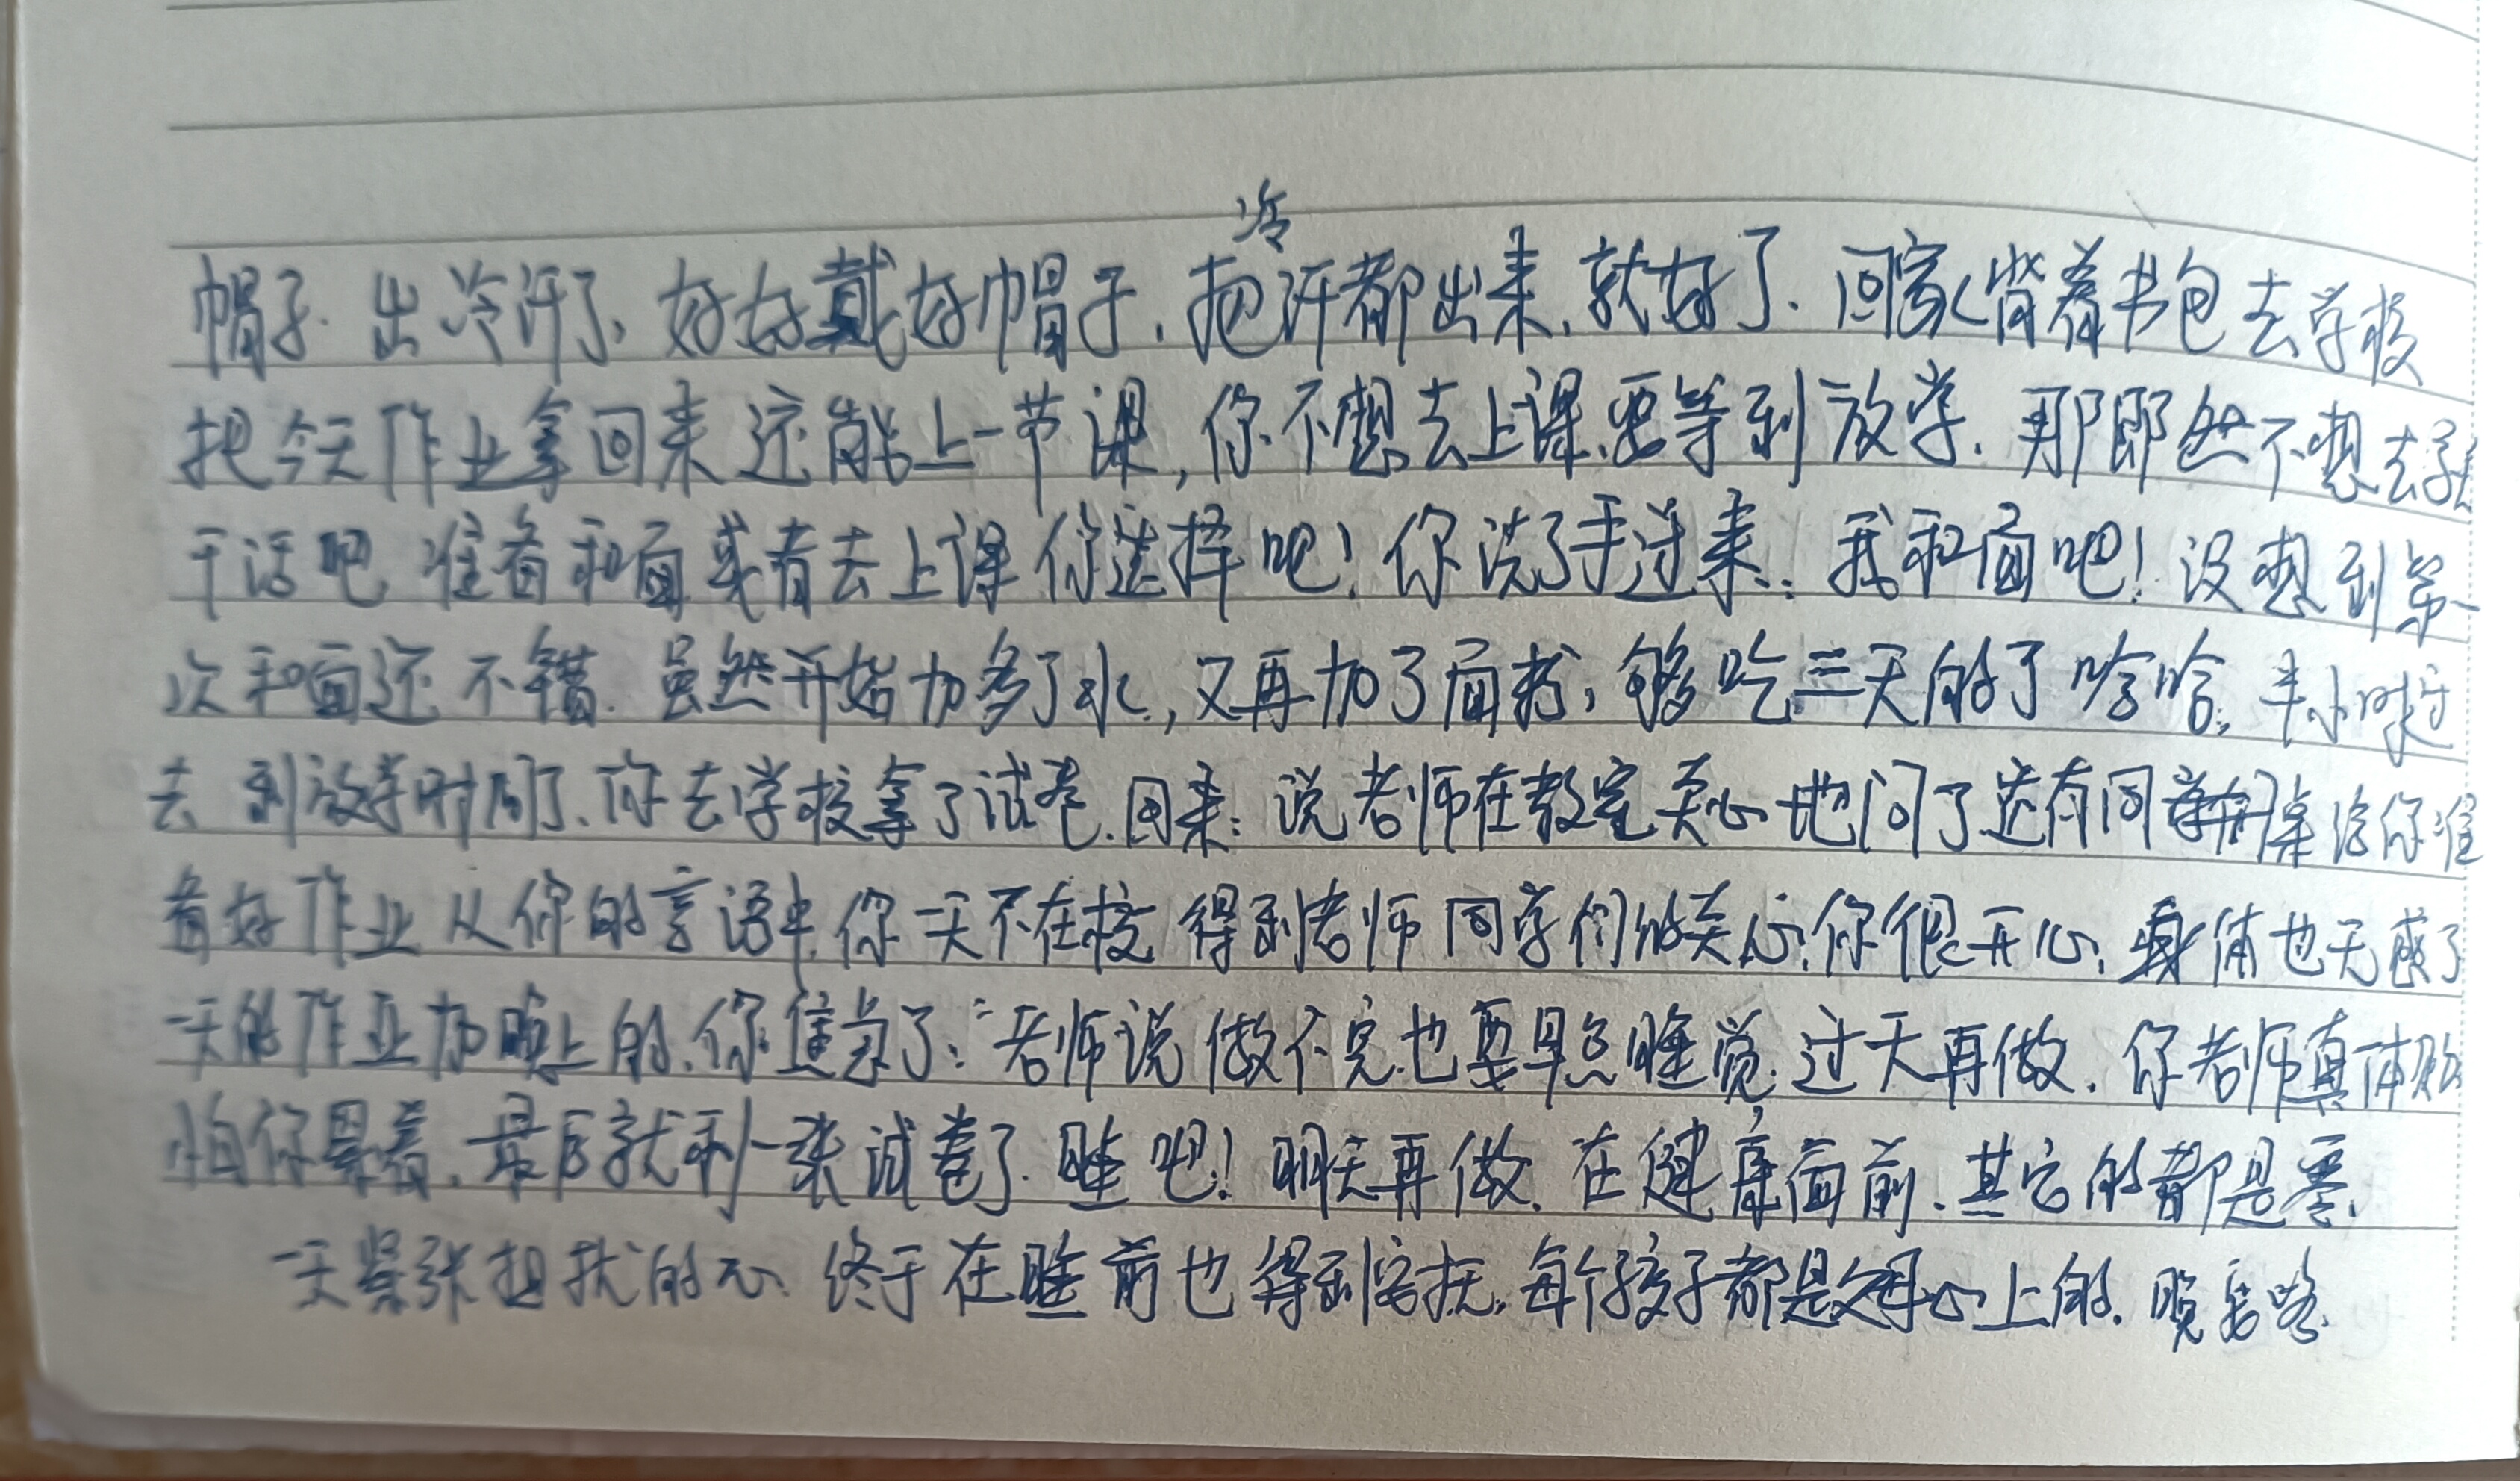 帽子.出冷汗了、好好戴好帽子,把冷汗都出来,就好了.回家背着书包去学校
把今天作业拿回来还能上一节课,你不想去上课要等到放学.那即然不想去就
干活吧 准备和面或者去上课你选择吧!你洗了手过来:我和面吧!没想到第一
次和面还不错.虽然开始加多了水,又再加了面粉,够吃三天的了哈哈,半小时过
去 到放学时间了、你去学校拿了试卷.回来:说老师在教室关心地问了还有同学们给你准
备好作业从你的言语中,你一天不在校,得到老师同学们的关心,你很开心,身体也无感了
一天的作业加晚上的,你焦急了:老师说做不完也要早点睡觉,过天再做.你老师真体贴
怕你累着,最后就剩一张试卷了.睡吧!明天再做.在健康面前、其它的都是零.
一天紧张担忧的心、终于在睡前也得到安抚,每个孩子都是父母心上的.晚安哈.